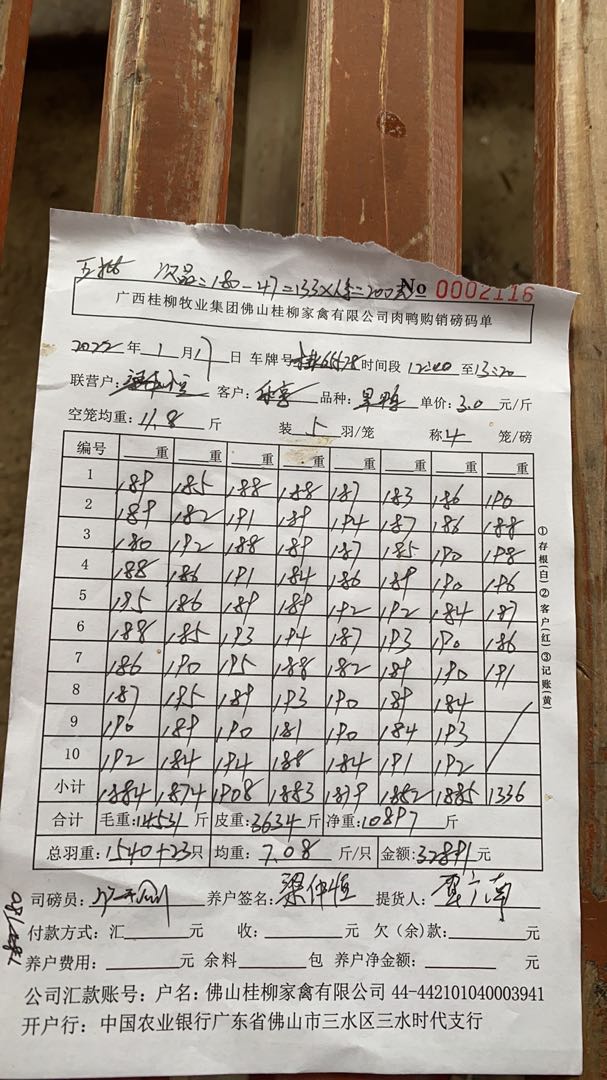 互批 次品=180-47=133×1.5=200元
No 0002116
广西桂柳牧业集团佛山桂柳家禽有限公司肉鸭购销磅码单
2022年1月17日 车牌号 时间段 12:40至13:20
联营户: 客户: 品种: 单价:3.0元/斤
空笼均重:11.8斤 装5羽/笼 称4笼/磅
编号 重 重 重 重 重 重 重 重
1 189 185 188 188 187 183 186 190
2 189 182 191 189 194 187 186 188
3 180 192 188 189 187 185 190 198
4 188 186 191 184 186 189 190 196
5 195 186 189 189 192 192 184 187
6 188 185 193 194 187 193 190 186
7 186 190 195 188 182 189 190 191
8 187 195 189 193 190 189 184
9 190 189 190 181 190 184 193
10 192 184 194 188 184 191 192
小计 1884 1874 1908 1883 1879 1882 1885 1336
合计 毛重:14531斤 皮重:3634斤 净重:10897斤
总羽重:1540+23只 均重:7.08斤/只 金额:32891元
司磅员: 养户签名:梁仲恒 提货人:
付款方式:汇 元 收: 元 欠(余)款: 元
养户费用: 元 余料 包 养户净金额: 元
公司汇款账号:户名:佛山桂柳家禽有限公司 44-442101040003941
开户行:中国农业银行广东省佛山市三水区三水时代支行
①存根(白)②客户(红)③记账(黄)